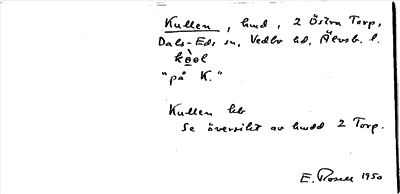 Kullen, hmd, 2 Östra Torp,
Dals-Eds sn, Vedbo hd, Älvsb. l.
"på K."
Kullen hb
Se översikt av hmdd 2 Torp.
E. Rosell 1950